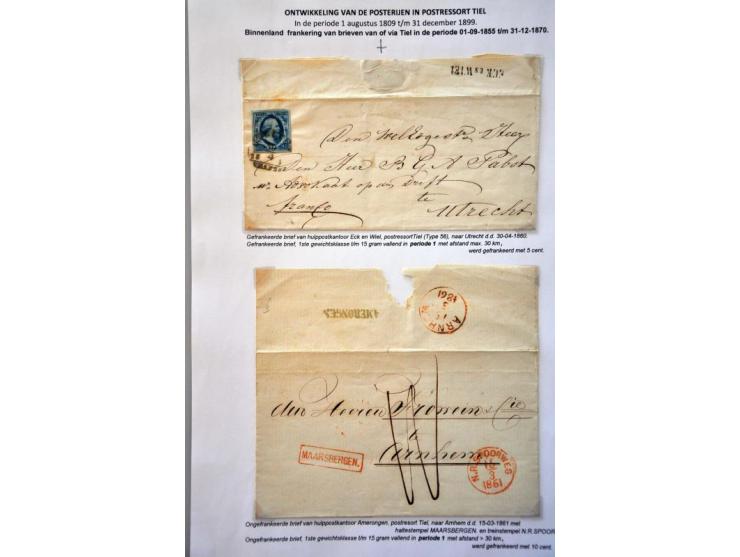 ONTWIKKELING VAN DE POSTERIJEN IN POSTRESSORT TIEL
In de periode 1 augustus 1809 t/m 31 december 1899.
Binnenland frankering van brieven van of via Tiel in de periode 01-09-1855 t/m 31-12-1870.
ECK EN WIEL
Den Weledgestr Heer
Den Heer B G A Pabst
Advokaat op den Drift
franco te
Utrecht
Gefrankeerde brief van hulppostkantoor Eck en Wiel, postressortTiel (Type 56), naar Utrecht d.d. 30-04-1860.
Gefrankeerde brief, 1ste gewichtsklasse t/m 15 gram vallend in periode 1 met afstand max. 30 km,
werd gefrankeerd met 5 cent.
AMERONGEN
ARNHEM
3
1861
den Heeren Fromein & Cie
te
Arnhem
MAARSBERGEN.
N.R.SPOORWEG
15
3
1861
Ongefrankeerde brief van hulppostkantoor Amerongen, postresort Tiel, naar Arnhem d.d. 15-03-1861 met
haltestempel MAARSBERGEN. en treinstempel N.R.SPOOR
Ongefrankeerde brief, 1ste gewichtsklasse t/m 15 gram vallend in periode 1 met afstand > 30 km,
werd gefrankeerd met 10 cent.